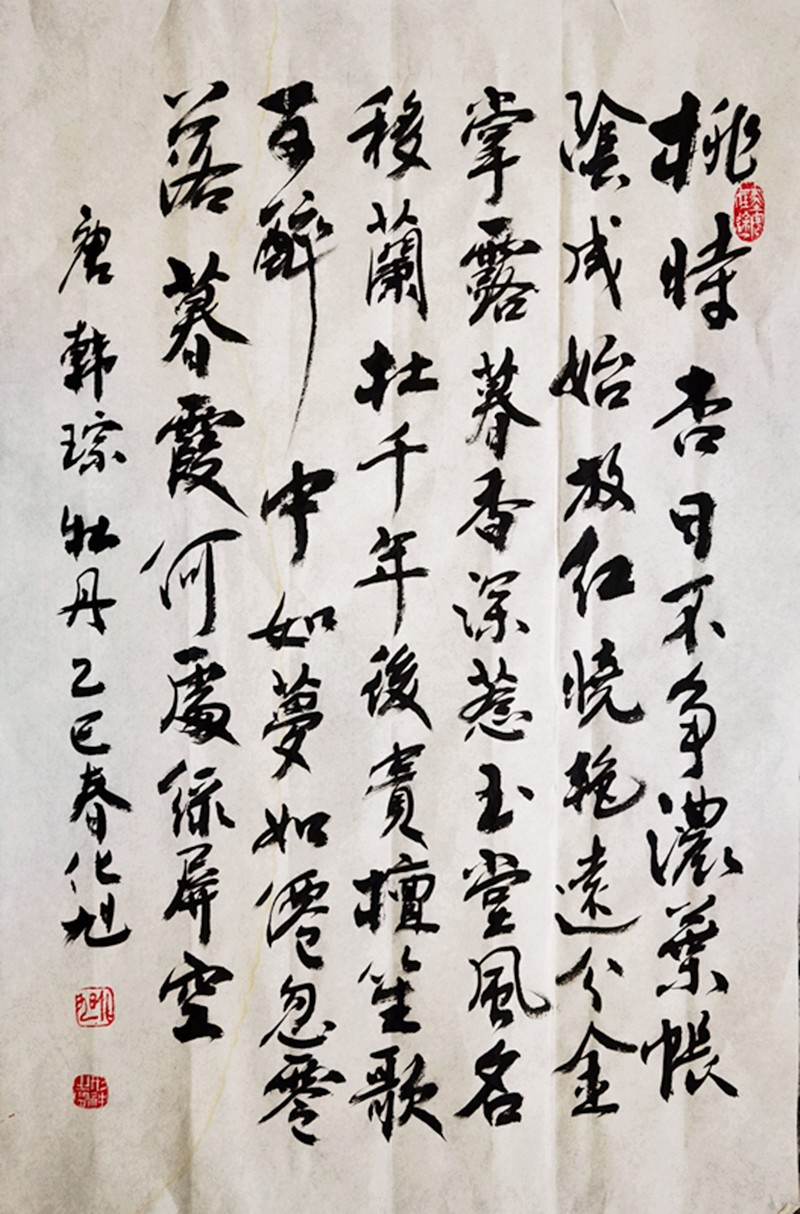 桃時杏日不争濃葉帳
陰成始放红曉艳遠分金
掌露暮香深惹玉堂風名
移蘭杜千年後貴擅笙歌
百醉中如夢如僊忽零
落暮霞何處绿屏空
唐韩琮牡丹乙巳春化旭